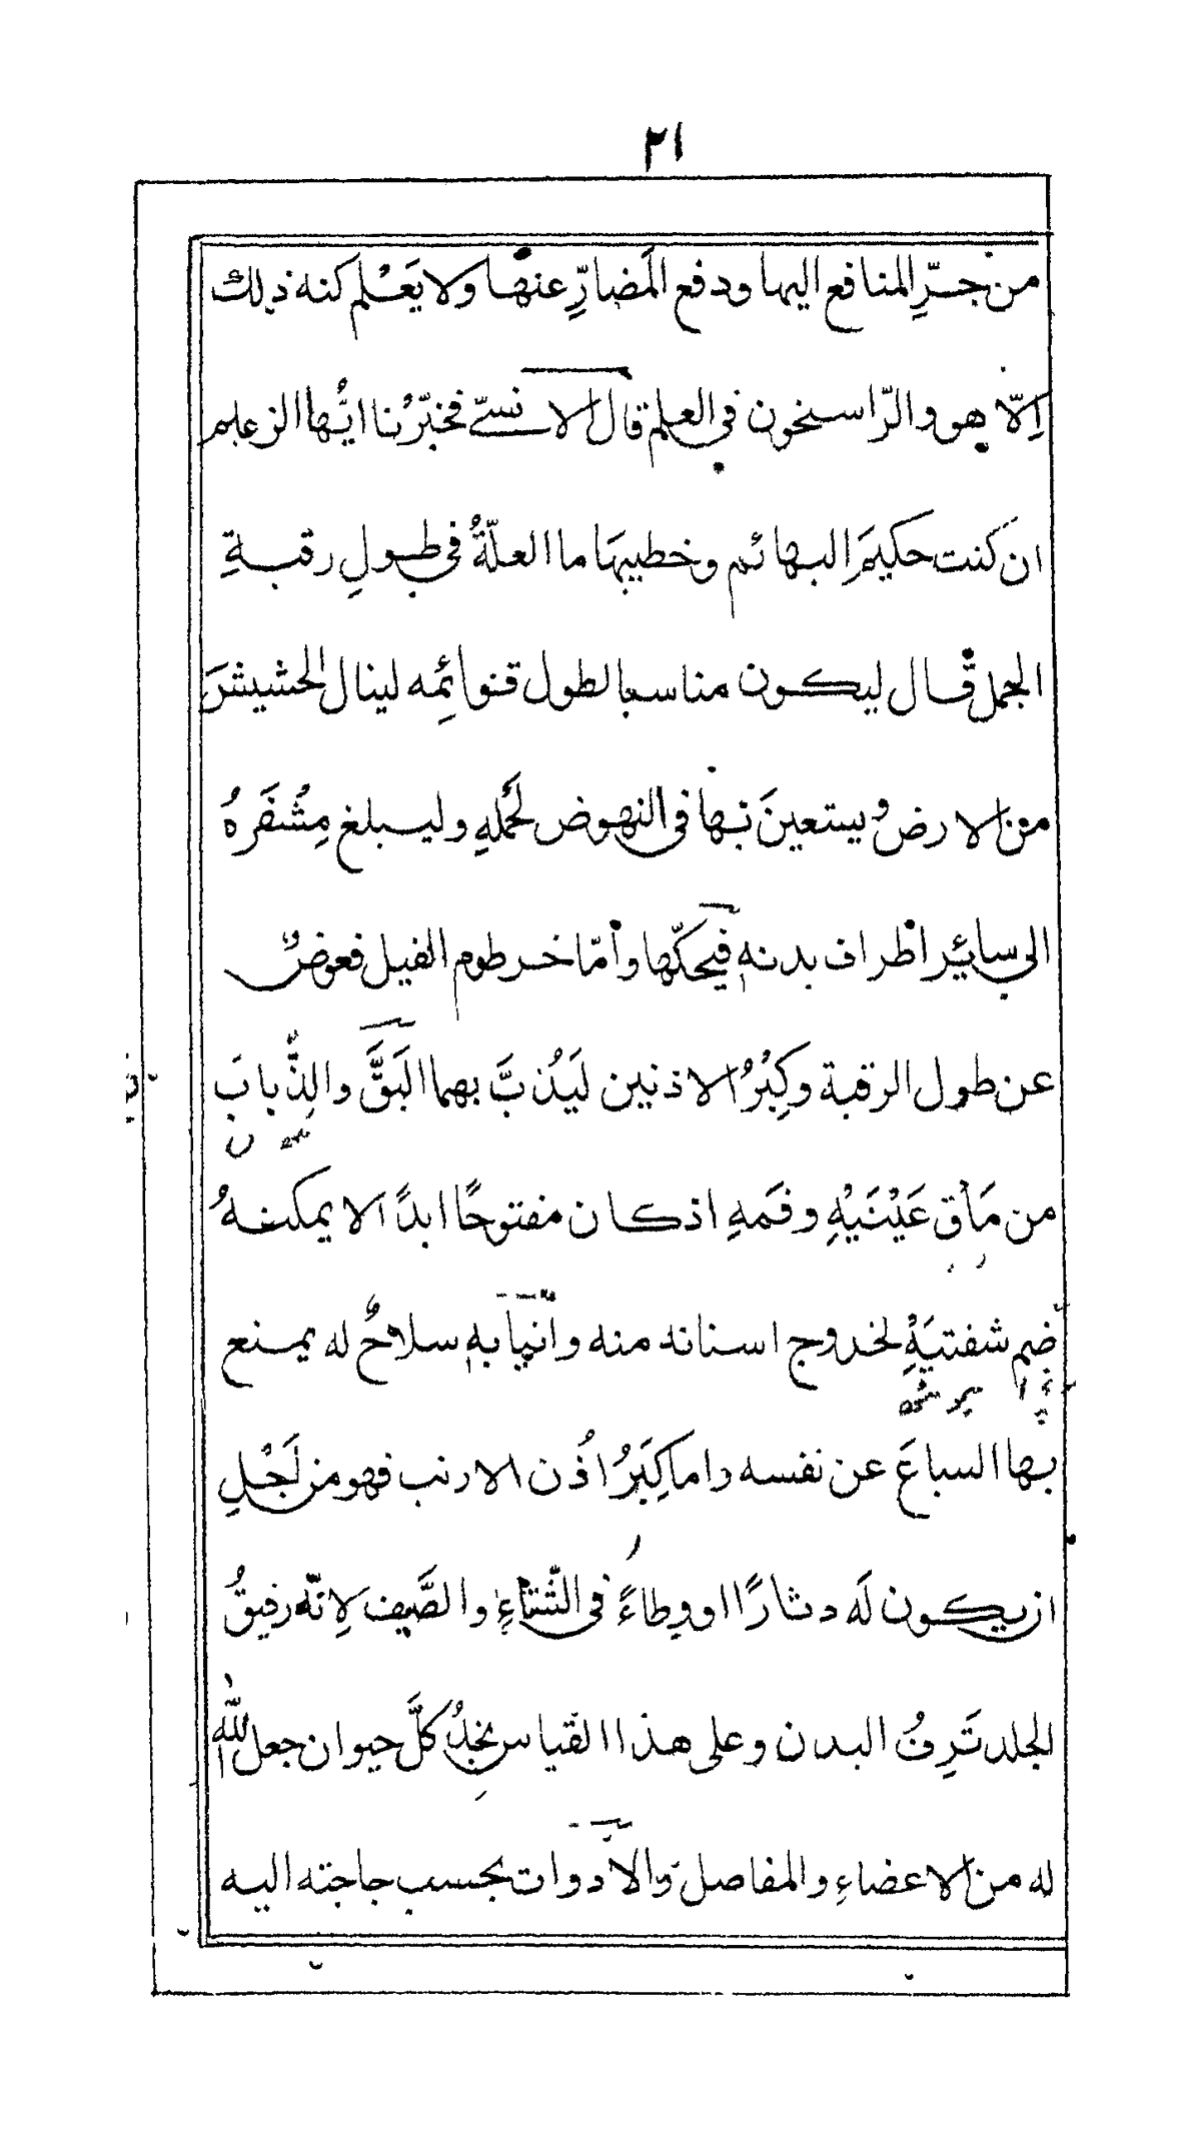 ٢١
من جرِّ المنافع اليها ودفع المَضارِّ عنها ولا يَعْلم كنه ذلك
اِلّا هو والرّاسخون في العلم قال الانسىّ فخبّرْنا ايُّها الزعيم
ان كنت حكيمَ البهائم وخطيبهَا ما العلّةُ في طول رقبةِ
الجمل قال ليكون مناسبا لطول قوائمِه لينال الحشيشَ
من الارض ويستعينَ بها في النهوض لحَمْلهِ وليبلغ مِشْفَرهُ
الى سائِر اطراف بدنه فيحكّها وأمّا خرطوم الفيل فعوضٌ
عن طول الرقبة وكِبْرُ الاذنين ليَذُبَّ بهما البَقَّ والذِّبابَ
من مَأْق عَيْنَيْهِ وفَمهِ اذ كان مفتوحًا ابدًا لا يمكنهُ
ضم شفتيَهْ لخروج اسنانه منه وانيابه سلاحٌ له يمنع
بها السباعَ عن نفسه واما كِبَرُ اُذن الارنب فهو من اَجْلِ
ان يكون لَه دثارًا او وِطاءً في الشّتاءِ والصَّيف لِانّه رقيقُ
الجلد تَرِفُ البدن وعلى هذا القياس نجدُ كلَّ حيوان جعل اللّٰه
له من الاعضاءِ والمفاصل والادوات بحسب حاجته اليه